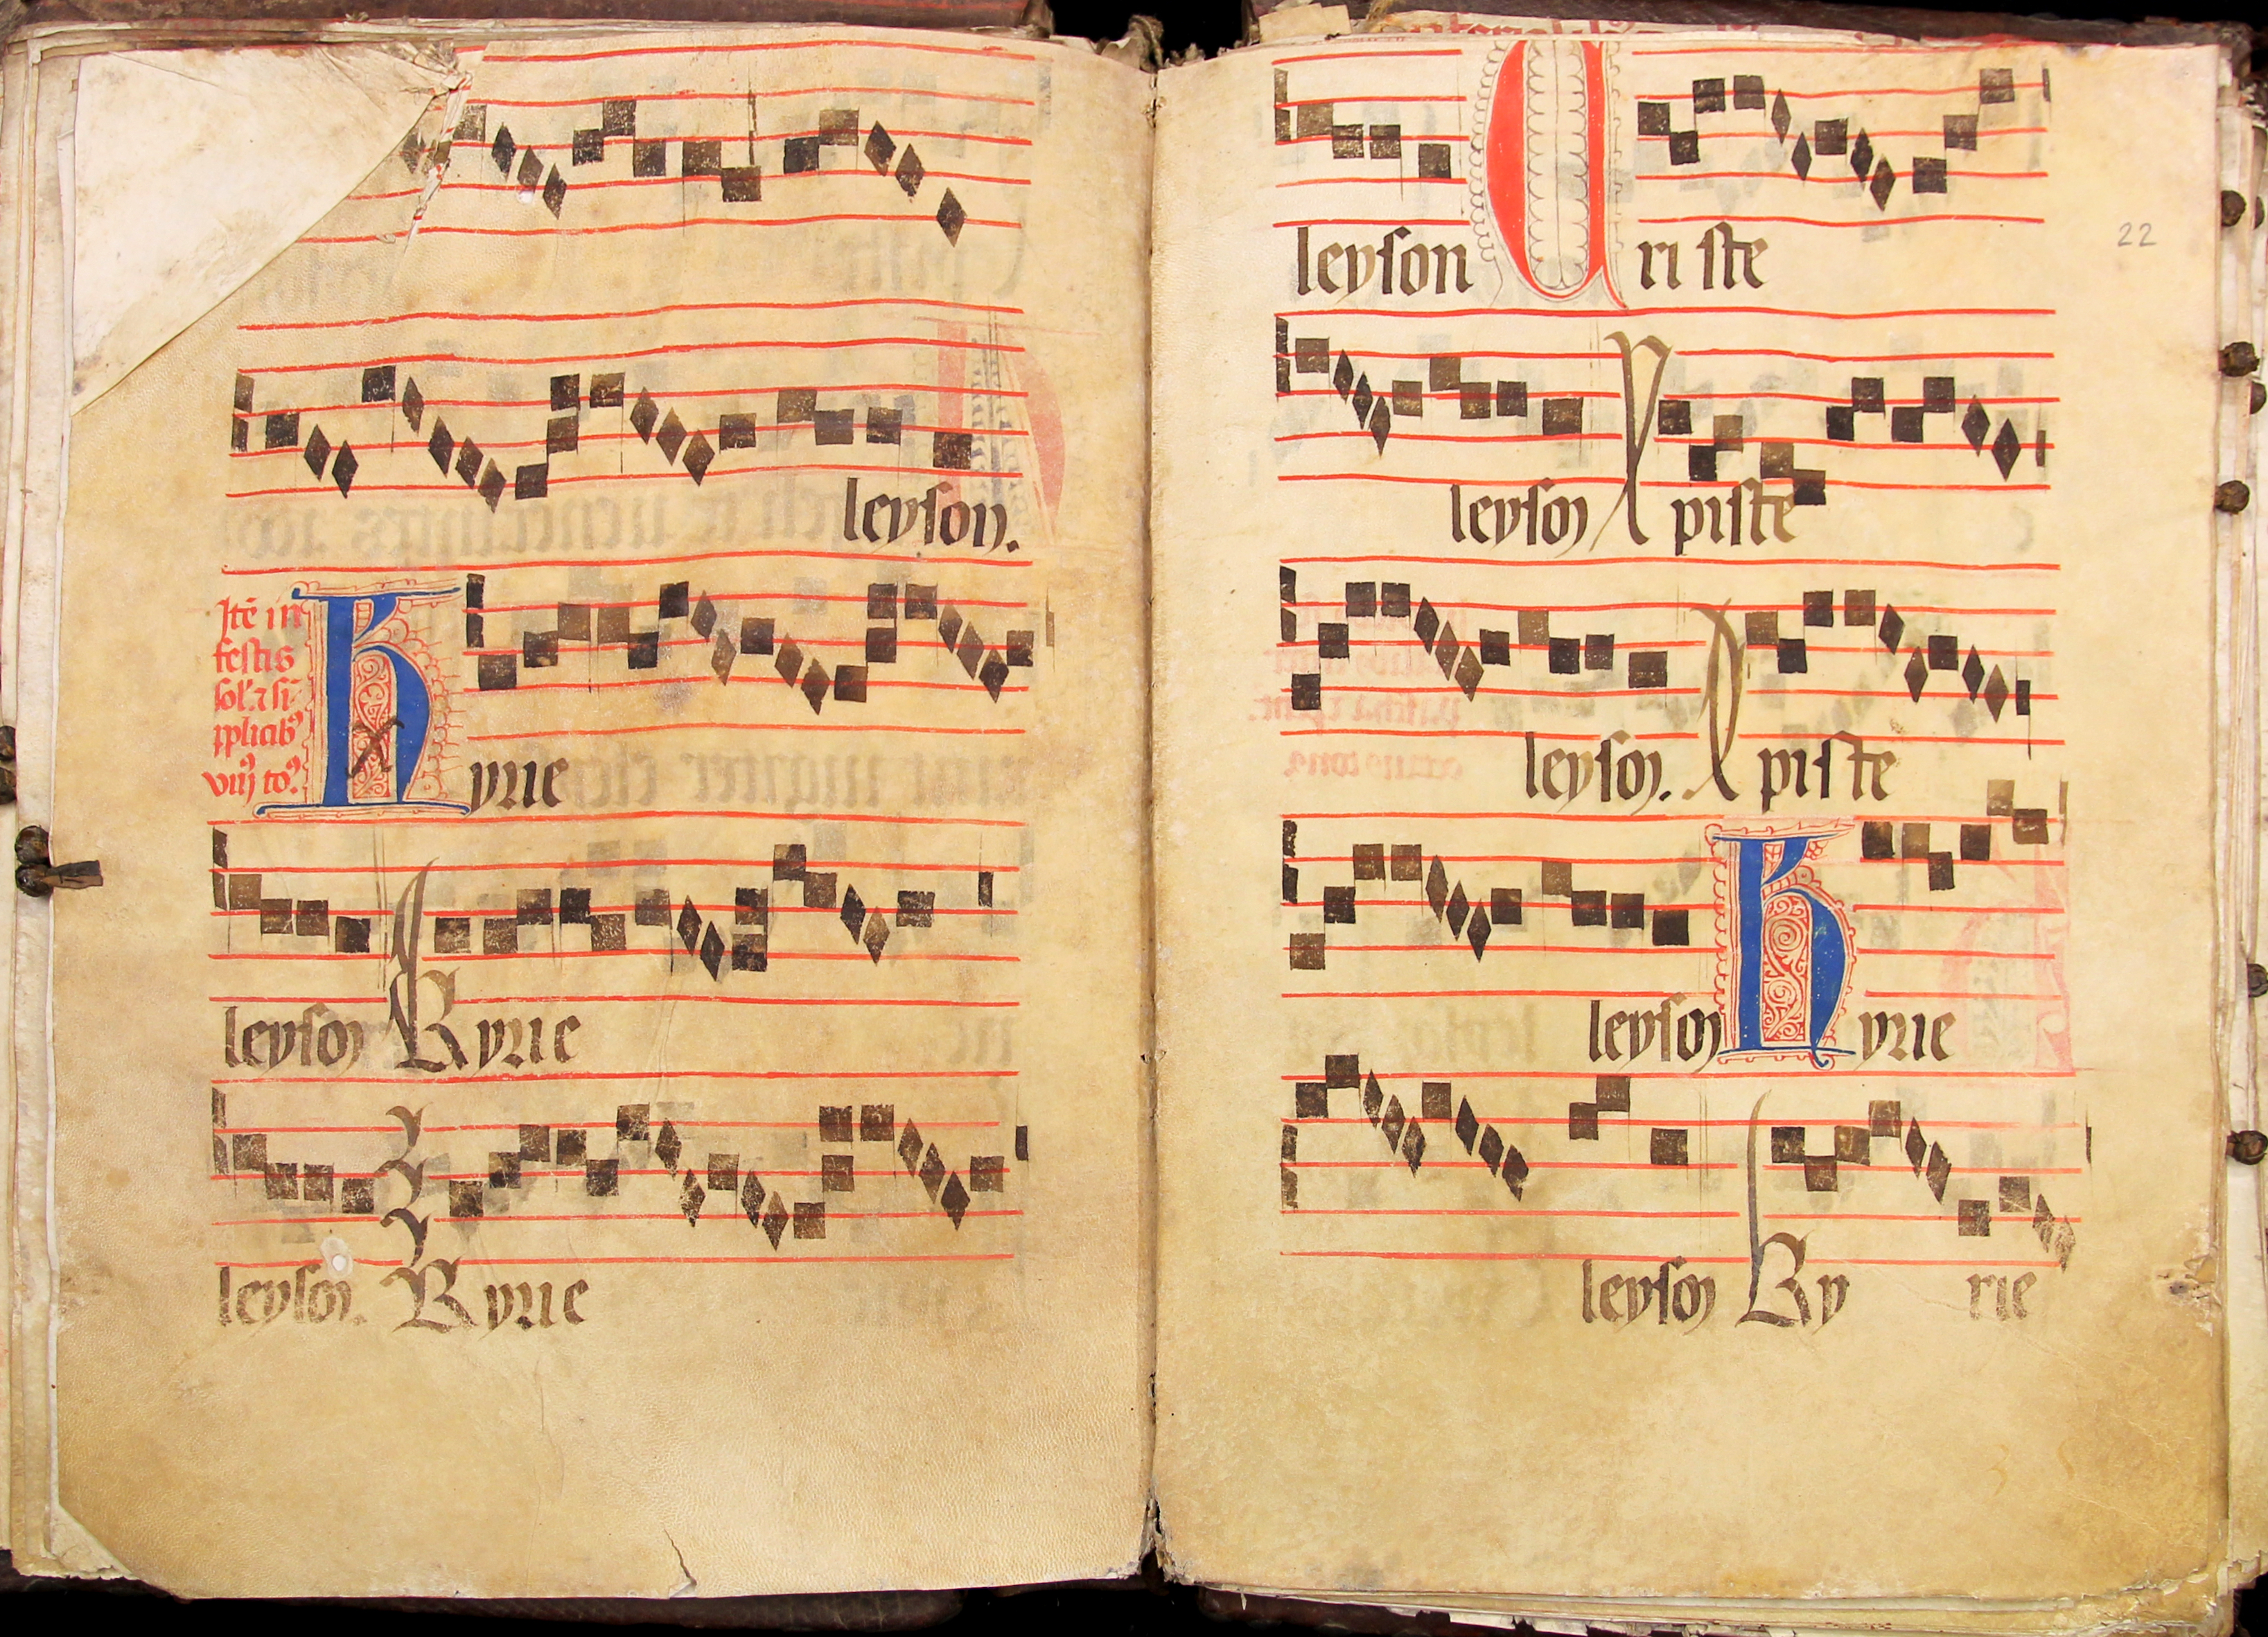 leyson.
Itē in
festis
sol' ⁊ si
plicibꝰ
viij toꝰ
Kyrie
leyson Kyrie
leyson. Kyrie
22
leyson Criste
leyson Xpiste
leyson. Xpiste
leyson Kyrie
leyson Kyrie